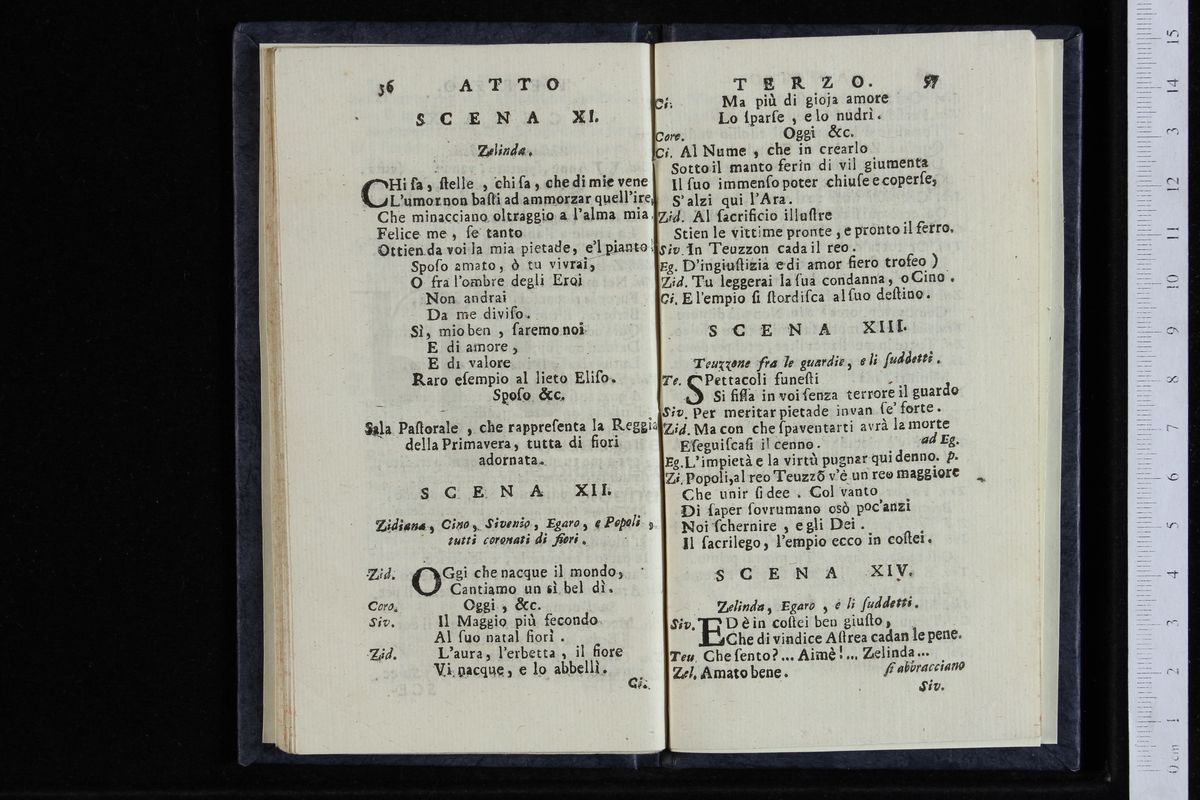 36 ATTO
SCENA XI.
Zelinda.
CHi ſa, ſtelle, chi ſa, che di mie vene
L'umor non baſti ad ammorzar quell'ire,
Che minacciano oltraggio a l'alma mia.
Felice me, ſe tanto
Ottien da voi la mia pietade, e'l pianto!
Spoſo amato, ò tu vivrai,
O fra l'ombre degli Eroi
Non andrai
Da me diviſo.
Sì, mio ben, ſaremo noi
E di amore,
E di valore
Raro eſempio al lieto Eliſo.
Spoſo &c.
Sala Paſtorale, che rappreſenta la Reggia
della Primavera, tutta di fiori
adornata.
SCENA XII.
Zidiana, Cino, Sivenio, Egaro, e Popoli,
tutti coronati di fiori.
Zid. OGgi che nacque il mondo,
Cantiamo un sì bel dì.
Coro. Oggi, &c.
Siv. Il Maggio più fecondo
Al ſuo natal fiorì.
Zid. L'aura, l'erbetta, il fiore
Vi nacque, e lo abbellì.
Ci.
TERZO. 57
Ci. Ma più di gioja amore
Lo ſparſe, e lo nudrì.
Core. Oggi &c.
Ci. Al Nume, che in crearlo
Sotto il manto ferin di vil giumenta
Il ſuo immenſo poter chiuſe e coperſe,
S'alzi qui l'Ara.
Zid. Al ſacrificio illuſtre
Stien le vittime pronte, e pronto il ferro.
Siv. In Teuzzon cada il reo.
Eg. D'ingiuſtizia e di amor fiero trofeo )
Zid. Tu leggerai la ſua condanna, o Cino.
Ci. E l'empio ſi ſtordiſca al ſuo deſtino.
SCENA XIII.
Teuzzone fra le guardie, e li ſuddetti.
Te. SPettacoli funeſti
Si fiſſa in voi ſenza terrore il guardo
Siv. Per meritar pietade invan ſe' forte.
Zid. Ma con che ſpaventarti avrà la morte
Eſeguiſcaſi il cenno. ad Eg.
Eg. L'impietà e la virtù pugnar qui denno. p.
Zi. Popoli, al reo Teuzzõ v'è un reo maggiore
Che unir ſi dee. Col vanto
Di ſaper ſovrumano osò poc'anzi
Noi ſchernire, e gli Dei.
Il ſacrilego, l'empio ecco in coſtei.
SCENA XIV.
Zelinda, Egaro, e li ſuddetti.
Siv. ED è in coſtei ben giuſto,
Che di vindice Aſtrea cadan le pene.
Teu Che ſento?... Aimè!... Zelinda...
Zel. Amato bene. ſi abbracciano
Siv.
0 cm 1 2 3 4 5 6 7 8 9 10 11 12 13 14 15